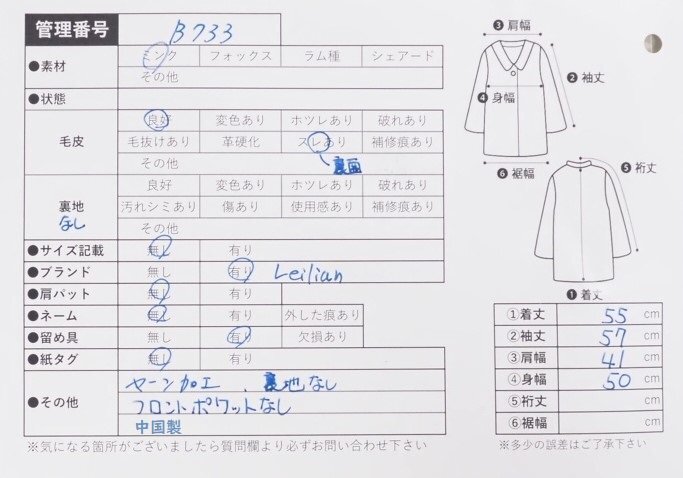 管理番号 B733
●素材 ミンク フォックス ラム種 シェアード
その他
●状態
毛皮 良好 変色あり ホツレあり 破れあり
毛抜けあり 革硬化 スレあり 補修痕あり
その他 裏面
裏地 なし 良好 変色あり ホツレあり 破れあり
汚れシミあり 傷あり 使用感あり 補修痕あり
その他
●サイズ記載 無し 有り
●ブランド 無し 有り Leilian
●肩パット 無し 有り
●ネーム 無し 有り 外した痕あり
●留め具 無し 有り 欠損あり
●紙タグ 無し 有り
●その他 ヤーン加工、裏地なし
フロントポケットなし
中国製
※気になる箇所がございましたら質問欄より必ずお問い合わせ下さい
❸肩幅
❷袖丈
❹身幅
❻裾幅
❺裄丈
❶着丈
①着丈 55 cm
②袖丈 57 cm
③肩幅 41 cm
④身幅 50 cm
⑤裄丈 cm
⑥裾幅 cm
※多少の誤差はご了承下さい